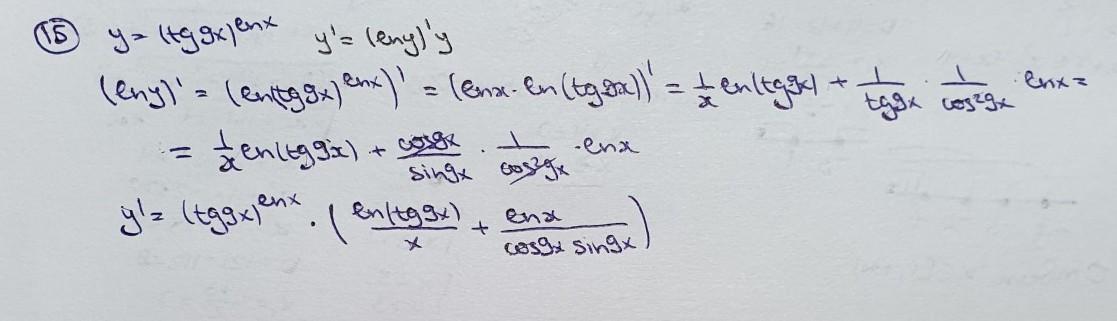 15 y = (tg9x)^lnx y' = (lny)'y
(lny)' = (ln(tg9x)^lnx)' = (lnx · ln(tg9x))' = 1/x ln(tg9x) + 1/tg9x · 1/cos²9x · lnx =
= 1/x ln(tg9x) + cos9x/sin9x · 1/cos²9x · lnx
y' = (tg9x)^lnx · (ln(tg9x)/x + lnx/cos9x sin9x)